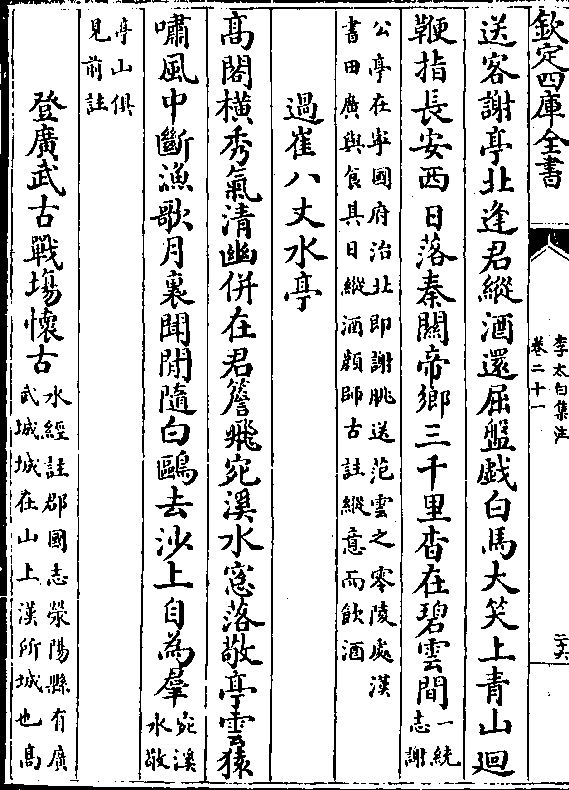 欽定四庫全書
李太白集注
卷二十一
二六
送客謝亭北逢君縱酒還屈盤戲白馬大笑上青山迴
鞭指長安西日落秦關帝鄉三千里杳在碧雲間一統
志謝
公亭在寧國府治北即謝朓送范雲之零陵處漢
書田廣與食其日縱酒顔師古註縱意而飲酒
過崔八丈水亭
高閣橫秀氣清幽併在君簷飛宛溪水窓落敬亭雲猿
嘯風中斷漁歌月裏聞閒隨白鷗去沙上自為羣宛溪
水敬
亭山俱
見前註
登廣武古戰塲懷古水經註郡國志滎陽縣有廣
武城城在山上漢所城也高